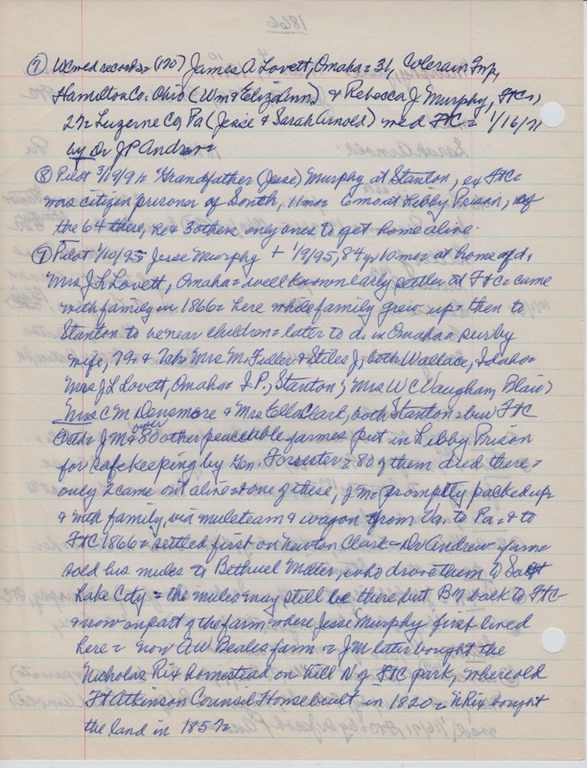 ⑦ WCmed records= (170) James A Lovett, Omaha= 31, Colerain Twp,
Hamilton Co. Ohio (Wm & Eliza Ann) & Rebecca J. Murphy, FtC,
27= Luzerne Co, Pa (Jesse & Sarah Arnold) med FtC = 1/16/71
by Dr JP Andrew=
⑧ Pilot 3/19/91= Grandfather (Jesse) Murphy at Stanton, ex FtC=
was citizen prisoner of South, 11 mos 6 mos at Libby Prison, of
the 64 there, he & 3 others only ones to get home alive.
⑨ Pilot 1/10/95= Jesse Murphy + 1/9/95, 84 yr 10 mos at home of d.
Mrs J L Lovett, Omaha= well known early settler at FtC= came
with family in 1866= here while family grew up= then to
Stanton to be near children= later to d. in Omaha= surby
wife, 79, & 7ch= Mrs M Fuller & Stiles J, both Wallace, Idaho=
Mrs J L Lovett, Omaha= I.P., Stanton; Mrs W C Vaughan, Blair;
Mrs C M Densmore & Mrs Ella Clark, both Stanton= bur FtC
Cem= J M & over 80 other peaceible farmers put in Libby Prison
for safekeeping by Gen. Forrester= 80 of them died there=
only 2 came out alive= one of these, J M= promptly packed up
& with family, via mule team & wagon from Va. to Pa= & to
FtC 1866= settled first on Newton Clark= Dr Andrew farm=
sold his mules to Bethuel Miller, who drove them to Salt
Lake City= the mules may still be there but B M back to FtC
& now on part of the farm where Jesse Murphy first lived
here= now A W Beales farm= J M later bought the
Nicholas Rix homestead on hill N of FtC park, where old
Ft Atkinson Council House built in 1820= N Rix bought
the land in 1857=